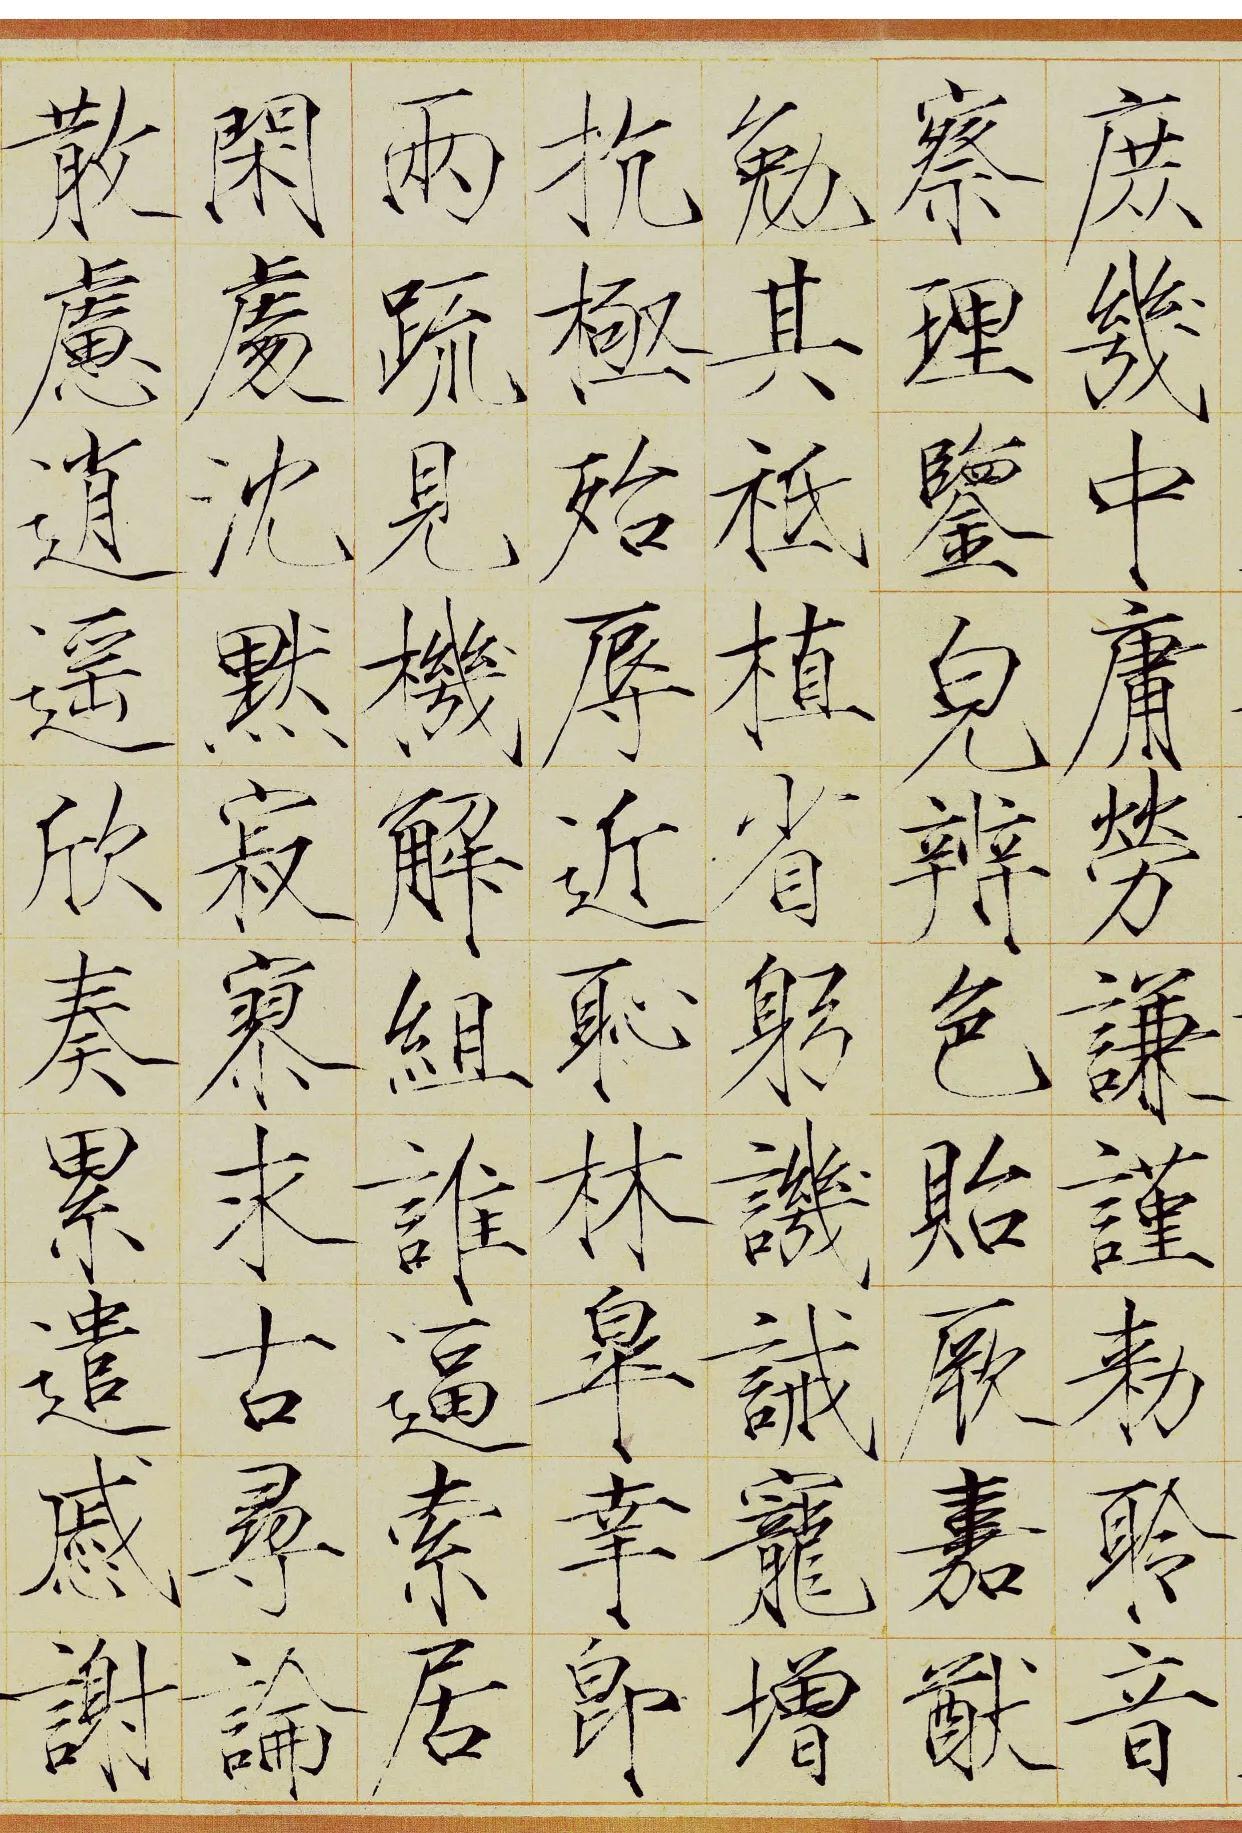 庶幾中庸勞謙謹勑聆音
察理鑒皃辨色貽厥嘉猷
勉其祗植省躬譏誡寵增
抗極殆辱近恥林皐幸即
兩疏見機解組誰逼索居
閑處沈默寂寥求古尋論
散慮逍遥欣奏累遣慼謝